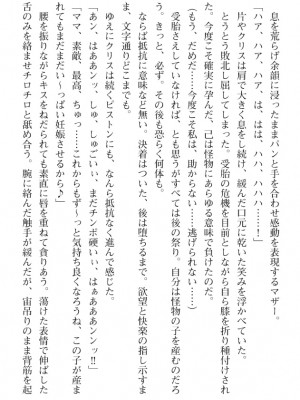 息を荒らげ余韻に浸ったままパンと手を合わせ感動を表現するマザー。
「ハア、ハア、ハア、は、はは、ハハハ……！」
片やクリスは肩で大きく息をし続け、緩んだ口元に乾いた笑みを浮かべていた。
とうとう敗北し屈してしまった。受胎の危機を目前としながら自ら膝を折り種付けされ
た。今度こそ確実に孕んだ、己は怪物にあらゆる意味で負けたのだ。
（もう、だめだ……今度こそ私は、助からない……逃げられない……）
受胎さえしていなければ、とも思うがすべては後の祭り。自分は怪物の子を産むのだろ
う。きっと、必ず。その後も恐らく何体も。
ならば抵抗に意味など無い。決着はついた、後は堕ちるまで。欲望と快楽の指し示すま
ま、文字通りどこまでも。
ゆえにクリスは続くピストンにも、なんら抵抗なく進んで感じた。
「あん、はああンッ、しゅ、しゅごいい、まだチンポ硬いぃ、はぁああンンッ!!」
「ママ、素敵、最高、ちゅっ……これからもず～っと気持ち良くなろうね、この子が産ま
れてもまだまだい～っぱい妊娠させるから♪」
腰を振りながらキスをねだられても素直に唇を重ねて貪りあう。蕩けた表情で伸ばした
舌のみを絡ませチロチロと舐め合う。腕に絡んだ触手が緩んだが、宙吊りのまま背筋を起